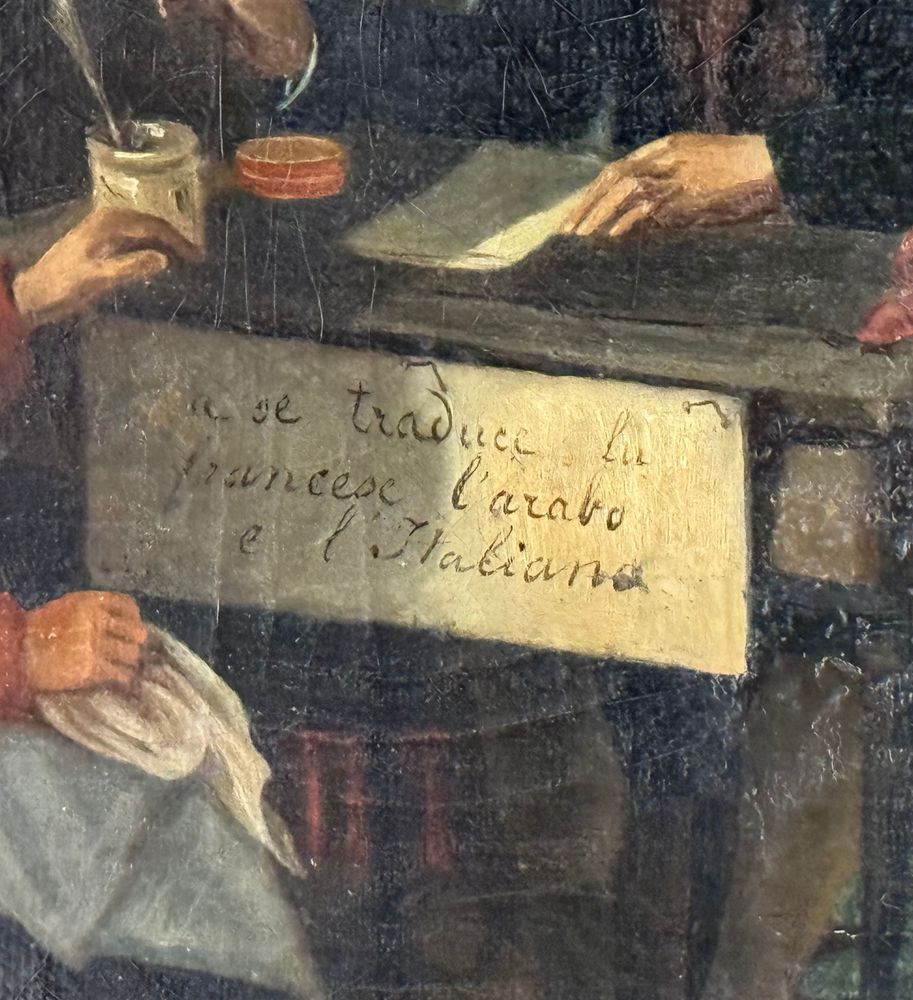 a se traduce la
francese l'arabo
e l'Italiano